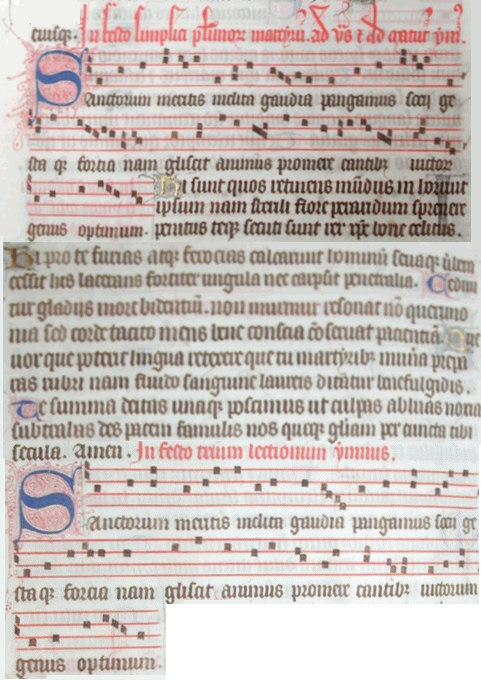 cuisq̄. In festo simplici plurimor martyrū. ad v̄s ⁊ ad  ̄ymn̄.
Sanctorum meritis inclita gaudia pangamus socii ge
sta qȝ fortia nam gliscit animus promere cantibȝ uictor
Hi sunt quos retinens mūdus in horruit
ipsum nam sterili flore peraridum spreuere
genus optimum. penitus teqȝ secuti sunt rex xp̄e bone celitus.
Hi pro te furias atqȝ ferocias calcarunt hominū seuaqȝ ūbera
cessit hos lacerans fortiter ungula nec carpsit penetralia. Cedun
tur gladijs more bidentiū. non murmur resonat nō querimo
nia sed corde tacito mens bene conscia cōseruat patientiā. Que
uox que poterit lingua retexere que tu martyribȝ munīa prepa
ras rubri nam fluido sanguine laureis ditātur benefulgidis.
Te summa deitas unaqȝ poscimus ut culpas abluas noxia
subtrahas des pacem famulis nos quoqȝ gl̄iam per cuncta tibi
secula. Amen. In festo trium lectionum ȳmnus.
Sanctorum meritis inclita gaudia pangamus socii ge
sta qȝ fortia nam gliscit animus promere cantibȝ uictorum
genus optimum.